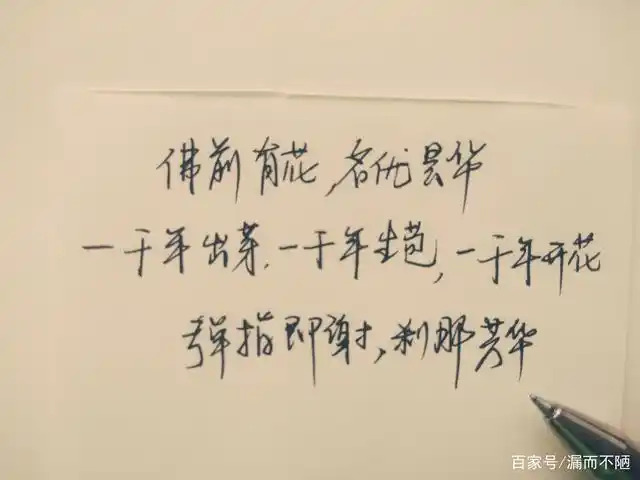 佛前有花,名优昙华
一千年出芽,一千年生苞,一千年开花
弹指即谢,刹那芳华
百家号/漏而不陋